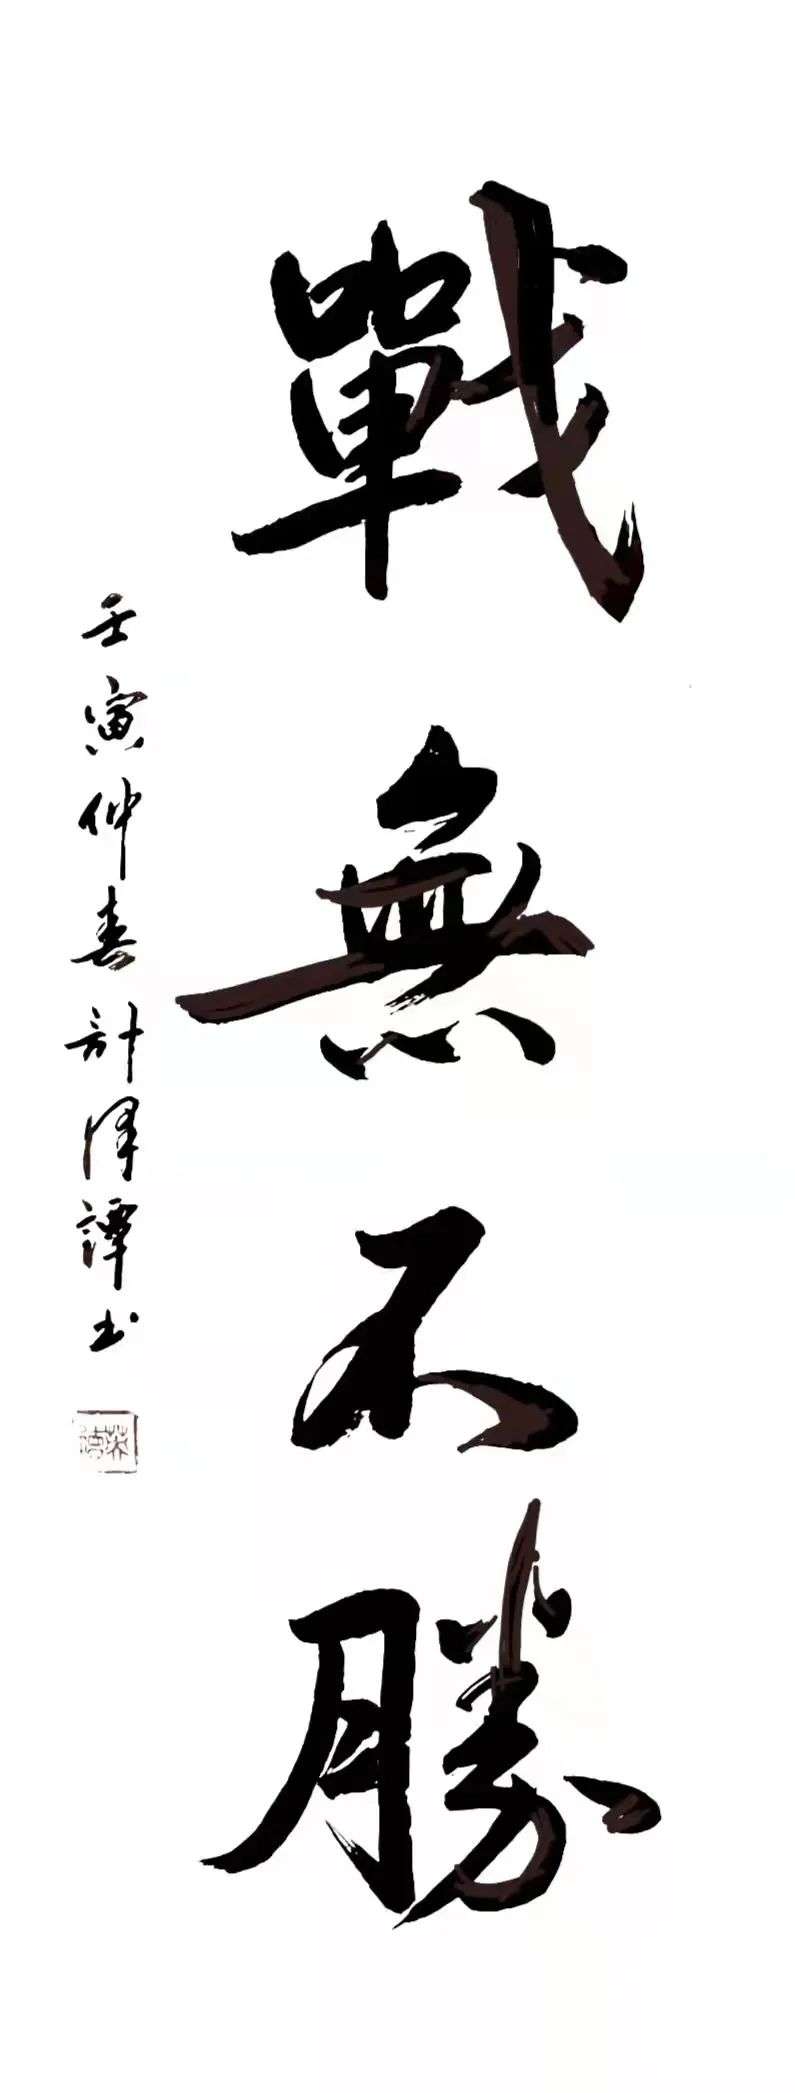 戰無不勝
壬寅仲春計澤譚書